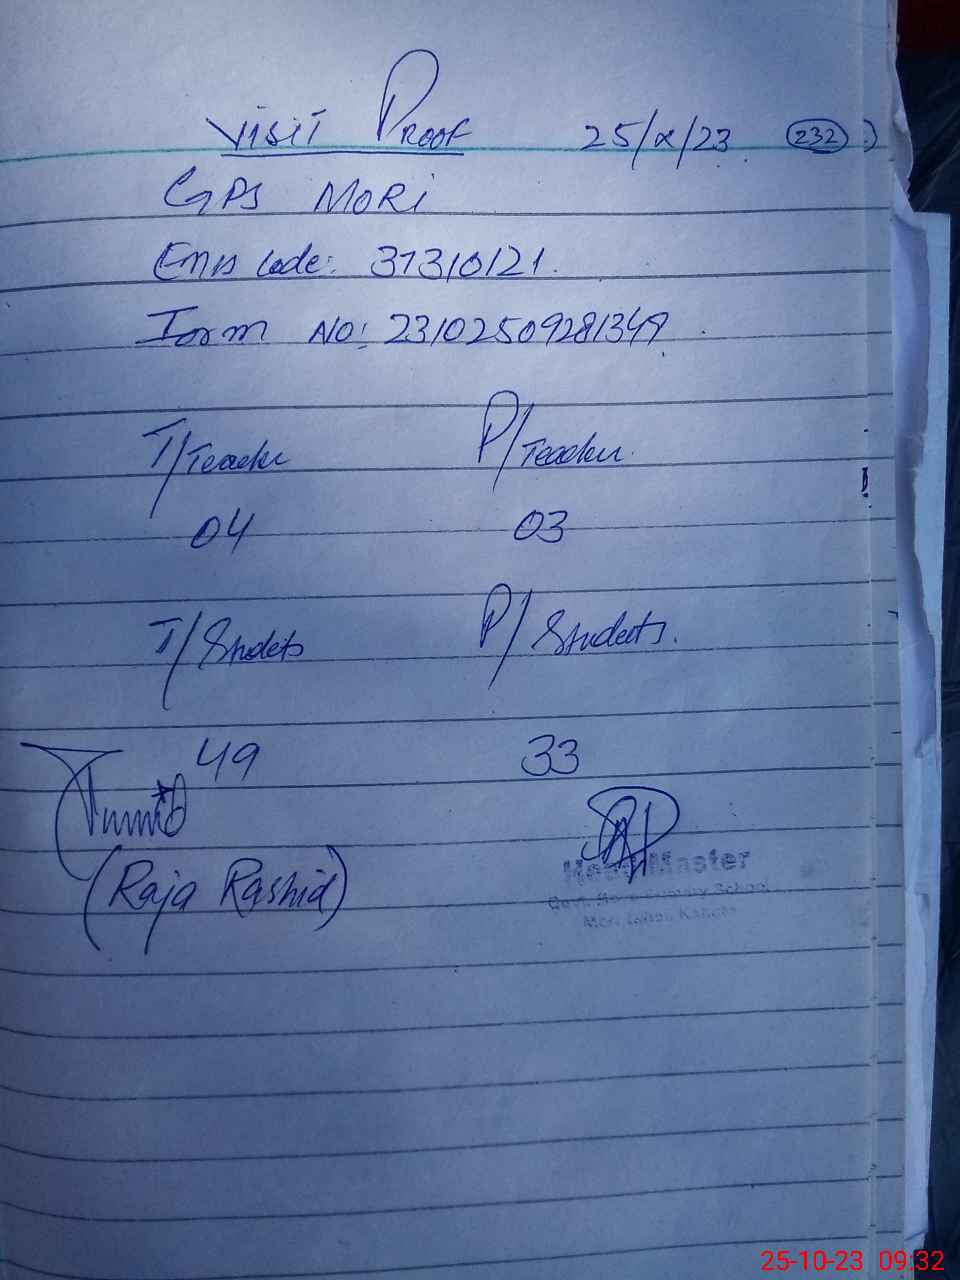 Visit Proof 25/x/23 232
GPS Mori
Emis Code: 31310121.
Form No: 23102509281349.
T/Teacher P/Teacher.
04 03
T/Students P/Students.
49 33
(Raja Rashid)
Head Master
Govt. Primary School
Mori
25-10-23 09:32